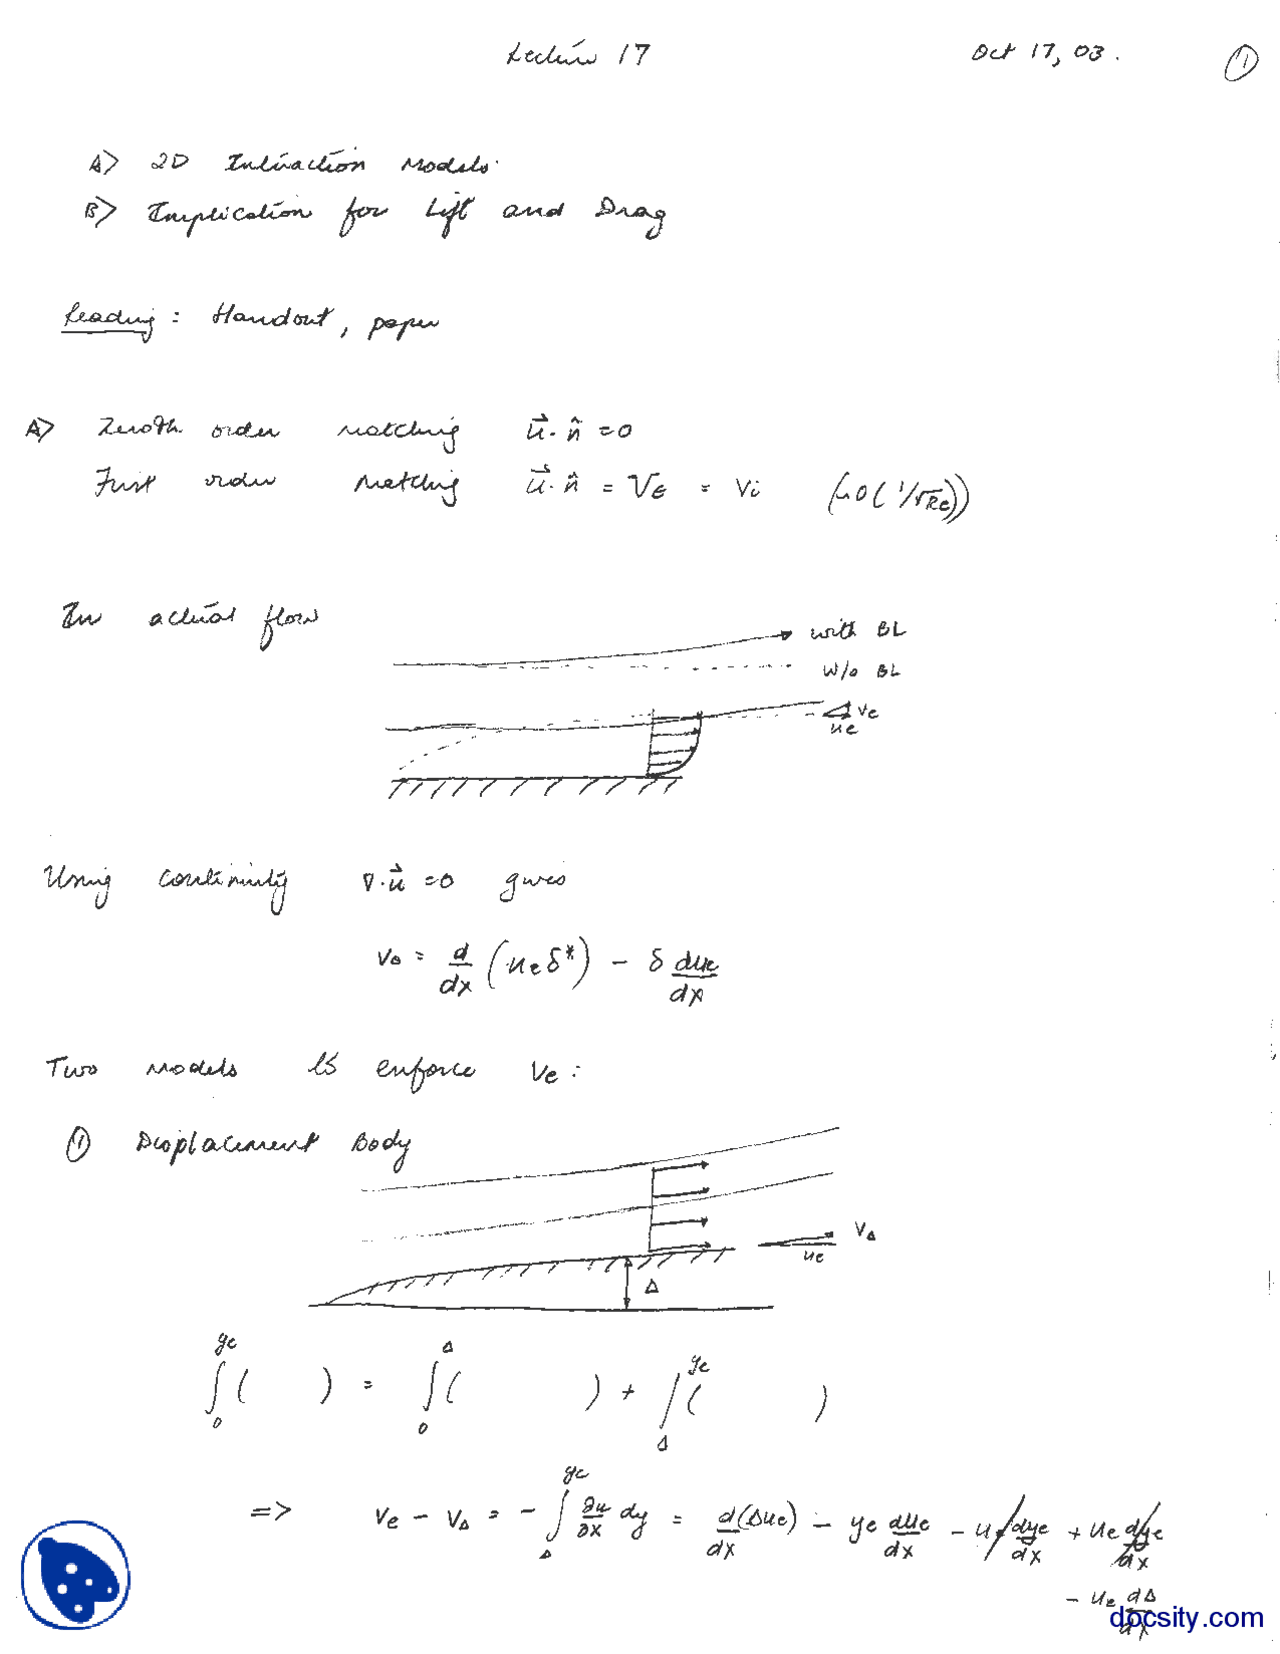 Lecture 17 Oct 17, 03. 1
A> 2D Interaction Models.
B> Implication for Lift and Drag
Reading: Handout, paper
A> Zeroth order matching u⃗·n̂ = 0
First order matching u⃗·n̂ = Ve = Vi (~O(1/√Re))
In actual flow
with BL
w/o BL
Ve
ue
Using continuity ∇·u⃗ = 0 gives
Ve = d/dx (ue δ*) − δ due/dx
Two models to enforce Ve:
① Displacement Body
VΔ
ue
Δ
∫₀^ye ( ) = ∫₀^Δ ( ) + ∫_Δ^ye ( )
=> Ve − VΔ = − ∫_Δ^ye ∂u/∂x dy = d(Δue)/dx − ye due/dx − ue dye/dx + ue dye/dx
− ue dΔ/dx
docsity.com